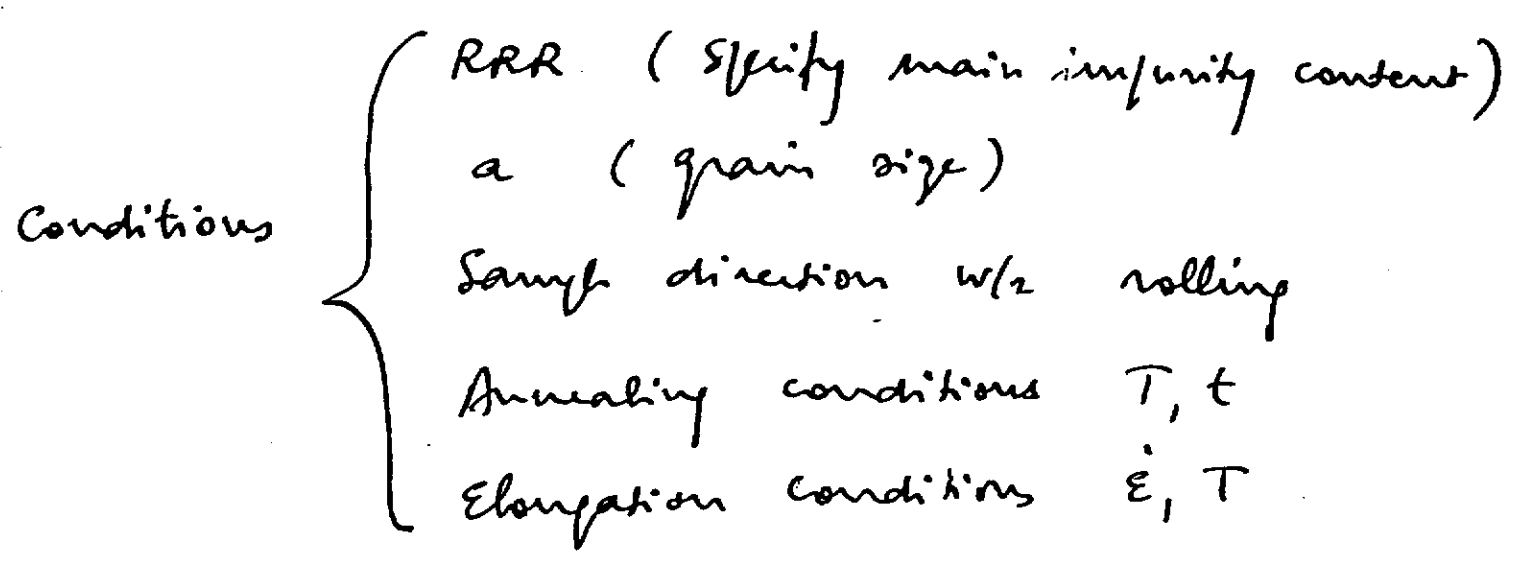 RRR (Specify main impurity content)
a (grain size)
Conditions
Sample direction w/r rolling
Annealing conditions T, t
Elongation conditions ε̇, T